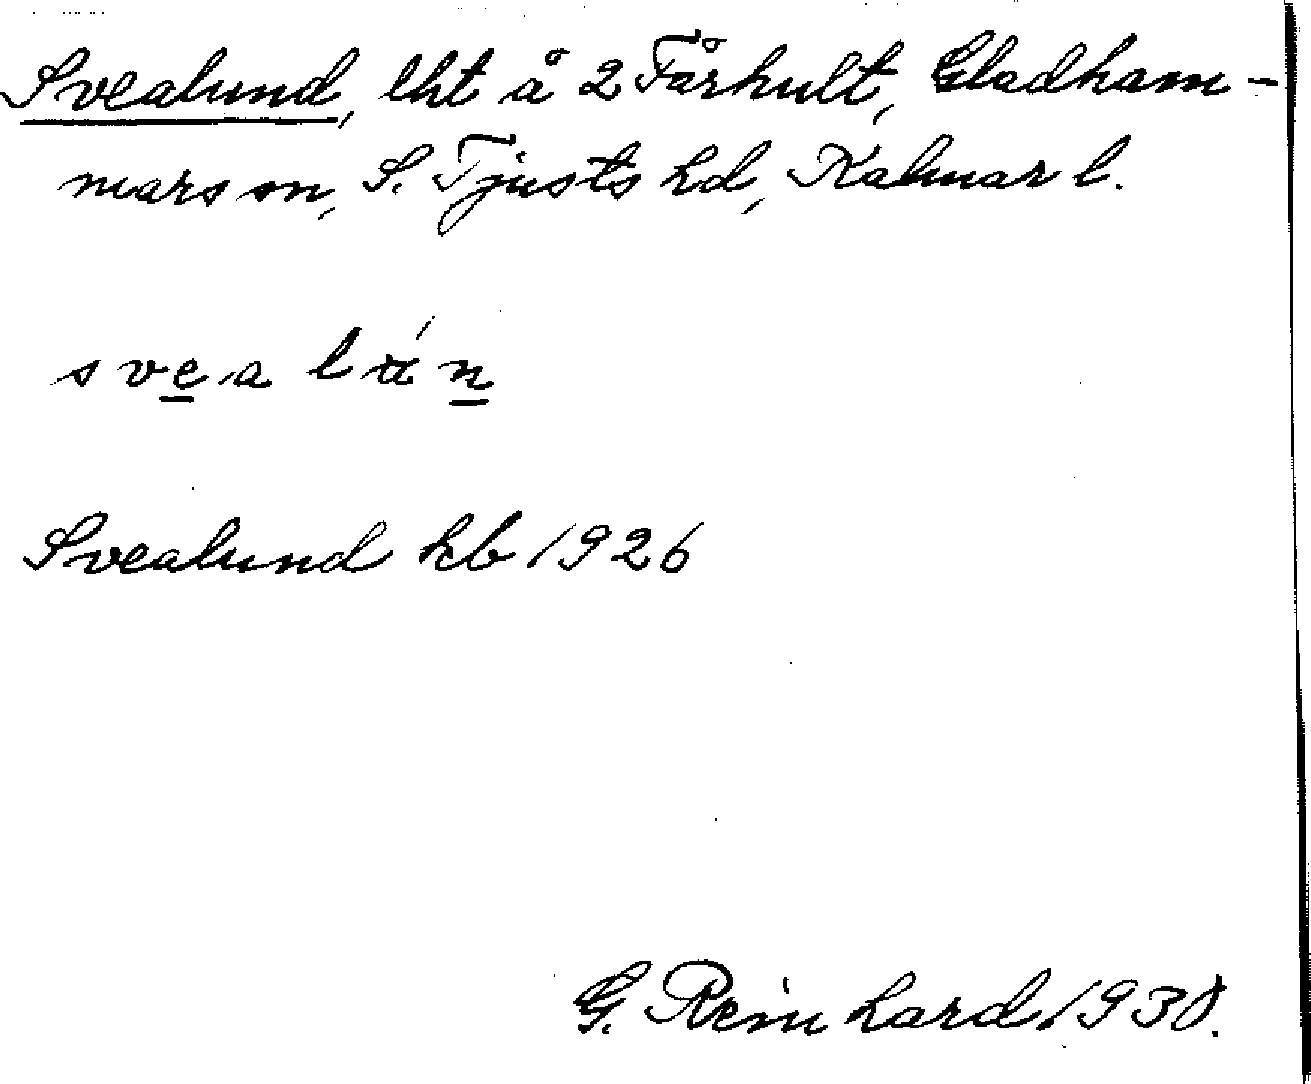 Svealund, lht å 2 Fårhult, Gladham-
mars sn, S. Tjusts hd, Kalmar l.
svea lún
Svealund kb 1926
G. Reinhard 1930.